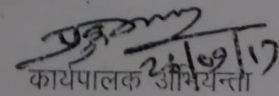 24/09/17
कार्यपालक अभियन्ता